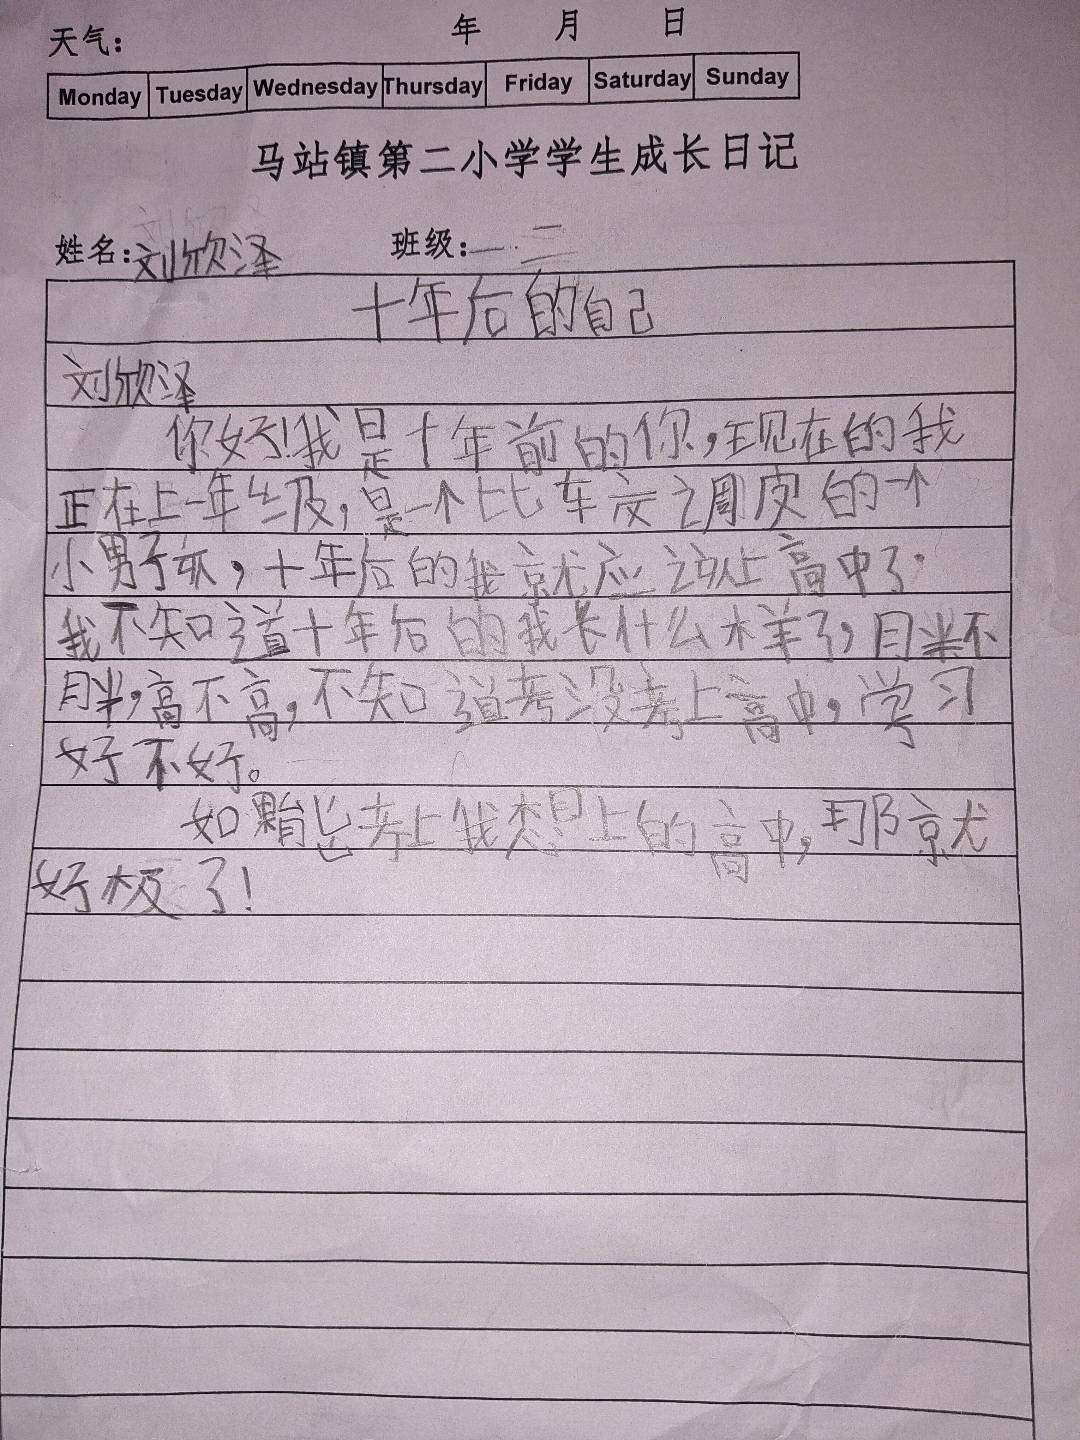 天气： 年 月 日
Monday Tuesday Wednesday Thursday Friday Saturday Sunday
马站镇第二小学学生成长日记
姓名：刘欣泽 班级：一.二
十年后的自己
刘欣泽
你好！我是十年前的你，现在的我
正在上一年级，是一个比较调皮的一个
小男孩，十年后的我就应该上高中了.
我不知道十年后的我长什么样了，胖不
胖，高不高，不知道考没考上高中，学习
好不好。
如果能考上我想上的高中，那就
好极了！